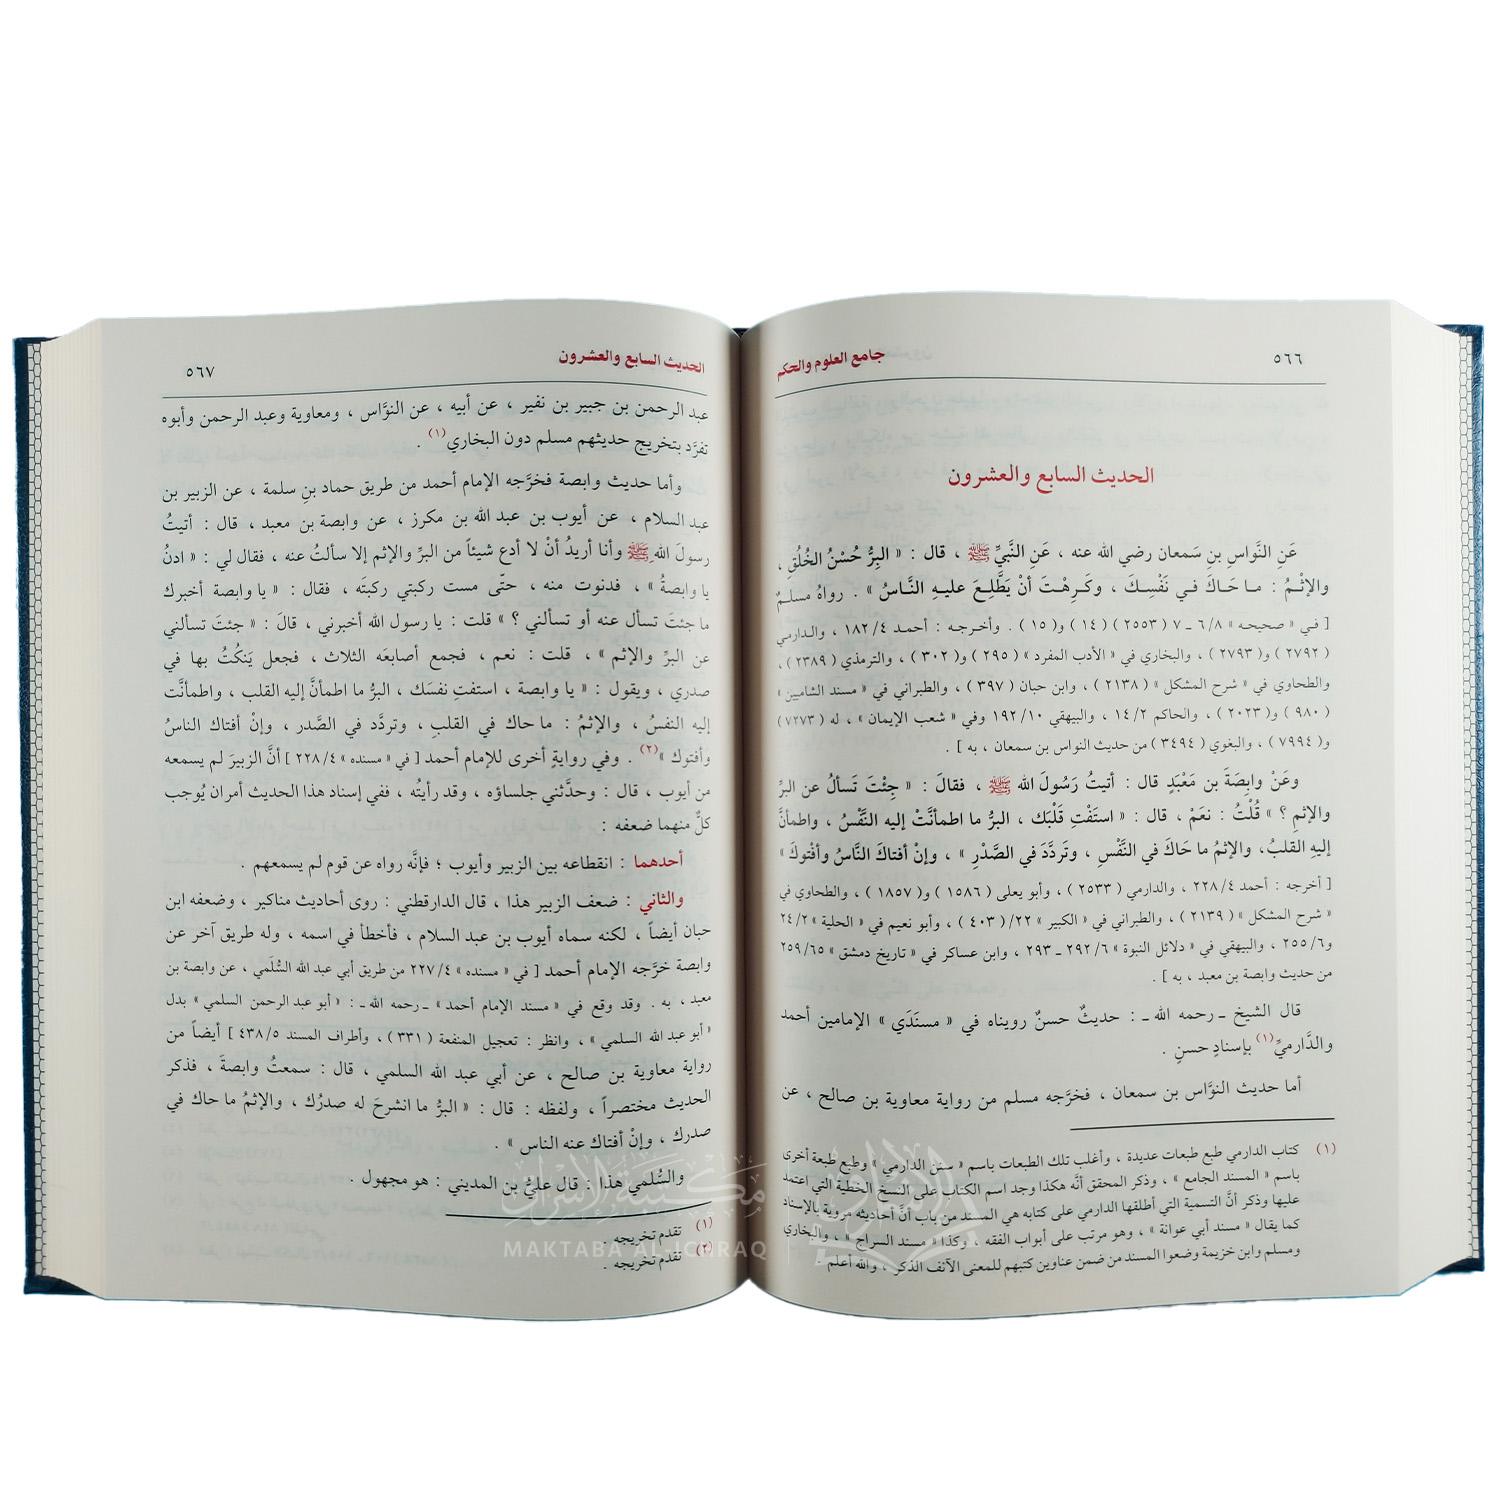 ٥٦٦
جامع العلوم والحكم
الحديث السابع والعشرون
عَنِ النَّواسِ بنِ سَمعان رضي الله عنه ، عَنِ النَّبيِّ ﷺ ، قال : « البِرُّ حُسْنُ الخُلُقِ ،
والإثْمُ : ما حَاكَ في نَفْسِكَ ، وكَرِهْتَ أنْ يَطَّلِعَ عليهِ النَّاسُ » . رواهُ مسلمٌ
[ في « صحيحه » ٦/٨ ـ ٧ ( ٢٥٥٣ ) ( ١٤ ) و( ١٥ ) . وأخرجه : أحمد ١٨٢/٤ ، والدارمي
( ٢٧٩٢ ) و( ٢٧٩٣ ) ، والبخاري في « الأدب المفرد » ( ٢٩٥ ) و( ٣٠٢ ) ، والترمذي ( ٢٣٨٩ ) ،
والطحاوي في « شرح المشكل » ( ٢١٣٨ ) ، وابن حبان ( ٣٩٧ ) ، والطبراني في « مسند الشامين »
( ٩٨٠ ) و( ٢٠٢٣ ) ، والحاكم ١٤/٢ ، والبيهقي ١٩٢/١٠ وفي « شعب الإيمان » ، له ( ٧٢٧٣ )
و( ٧٩٩٤ ) ، والبغوي ( ٣٤٩٤ ) من حديث النواس بن سمعان ، به ] .
وعَنْ وابِصَةَ بن مَعْبَدٍ قال : أتيتُ رَسُولَ الله ﷺ ، فقالَ : « جِئْتَ تَسألُ عن البرِّ
والإثمِ ؟ » قُلْتُ : نعَمْ ، قال : « استَفْتِ قَلْبَك ، البرُّ ما اطمأنَّتْ إليه النَّفْسُ ، واطمأنَّ
إليهِ القلبُ، والإثمُ ما حَاكَ في النَّفْسِ ، وتَردَّدَ في الصَّدْرِ » ، وإنْ أفتاكَ النَّاسُ وأفْتوكَ »
[ أخرجه : أحمد ٢٢٨/٤ ، والدارمي ( ٢٥٣٣ ) ، وأبو يعلى ( ١٥٨٦ ) و( ١٨٥٧ ) ، والطحاوي في
« شرح المشكل » ( ٢١٣٩ ) ، والطبراني في « الكبير » ٢٢/( ٤٠٣ ) ، وأبو نعيم في « الحلية » ٢٤/٢
و٢٥٥/٦ ، والبيهقي في « دلائل النبوة » ٢٩٢/٦ ـ ٢٩٣ ، وابن عساكر في « تاريخ دمشق » ٢٥٩/٦٥
من حديث وابصة بن معبد ، به ] .
قال الشيخ ـ رحمه الله ـ : حديثٌ حسنٌ رويناه في « مسنَدَي » الإمامين أحمد
والدَّارميِّ(١) بإسنادٍ حسنٍ .
أما حديث النوَّاس بن سمعان ، فخرَّجه مسلم من رواية معاوية بن صالح ، عن
(١) كتاب الدارمي طبع طبعات عديدة ، وأغلب تلك الطبعات باسم « سنن الدارمي » وطبع طبعة أخرى
باسم « المسند الجامع » ، وذكر المحقق أنَّه هكذا وجد اسم الكتاب على النسخ الخطية التي اعتمد
عليها وذكر أنَّ التسمية التي أطلقها الدارمي على كتابه هي المسند من باب أنَّ أحاديثه مروية بالإسناد
كما يقال « مسند أبي عوانة » ، وهو مرتب على أبواب الفقه ، وكذا « مسند السراج » ، والبخاري
ومسلم وابن خزيمة وضعوا المسند من ضمن عناوين كتبهم للمعنى الآنف الذكر ، والله أعلم
الحديث السابع والعشرون
٥٦٧
عبد الرحمن بن جبير بن نفير ، عن أبيه ، عن النوَّاس ، ومعاوية وعبد الرحمن وأبوه
تفرَّد بتخريج حديثهم مسلم دون البخاري(١) .
وأما حديث وابصة فخرَّجه الإمام أحمد من طريق حماد بنِ سلمة ، عن الزبير بن
عبد السلام ، عن أيوب بن عبد الله بن مكرز ، عن وابصة بن معبد ، قال : أتيتُ
رسولَ اللهِ ﷺ وأنا أريدُ أنْ لا أدع شيئاً من البرِّ والإثم إلا سألتُ عنه ، فقال لي : « ادنُ
يا وابصةُ » ، فدنوت منه ، حتّى مست ركبتي ركبته ، فقال : « يا وابصة أخبرك
ما جئتَ تسأل عنه أو تسألني ؟ » قلت : يا رسول الله أخبرني ، قالَ : « جئتَ تسألني
عن البرِّ والإثم » ، قلت : نعم ، فجمع أصابعَه الثلاث ، فجعل يَنكُتُ بها في
صدري ، ويقول : « يا وابصة ، استفتِ نفسَك ، البرُّ ما اطمأنَّ إليه القلب ، واطمأنَّت
إليه النفسُ ، والإثمُ : ما حاك في القلبِ ، وتردَّد في الصَّدر ، وإنْ أفتاك الناسُ
وأفتوك »(٢) . وفي روايةٍ أخرى للإمام أحمد [ في « مسنده » ٢٢٨/٤ ] أنَّ الزبيرَ لم يسمعه
من أيوب ، قال : وحدَّثني جلساؤه ، وقد رأيتُه ، ففي إسناد هذا الحديث أمران يُوجب
كلٌّ منهما ضعفه :
أحدهما : انقطاعه بين الزبير وأيوب ؛ فإنَّه رواه عن قوم لم يسمعهم .
والثاني : ضعف الزبير هذا ، قال الدارقطني : روى أحاديث مناكير ، وضعفه ابن
حبان أيضاً ، لكنه سماه أيوب بن عبد السلام ، فأخطأ في اسمه ، وله طريق آخر عن
وابصة خرَّجه الإمام أحمد [ في « مسنده » ٢٢٧/٤ من طريق أبي عبد الله السُّلَمي ، عن وابصة بن
معبد ، به . وقد وقع في « مسند الإمام أحمد » ـ رحمه الله ـ : « أبو عبد الرحمن السلمي » بدل
« أبو عبد الله السلمي » ، وانظر : تعجيل المنفعة ( ٣٣١ ) ، وأطراف المسند ٤٣٨/٥ ] أيضاً من
رواية معاوية بن صالح ، عن أبي عبد الله السلمي ، قال : سمعتُ وابصةَ ، فذكر
الحديث مختصراً ، ولفظه : قال : « البرُّ ما انشرحَ له صدرُك ، والإثمُ ما حاك في
صدرك ، وإنْ أفتاك عنه الناس » .
والسُّلمي هذا : قال عليُّ بن المديني : هو مجهول .
(١) تقدم تخريجه .
(٢) تقدم تخريجه .
مكتبة الإشراق
MAKTABA AL-ICHRAQ